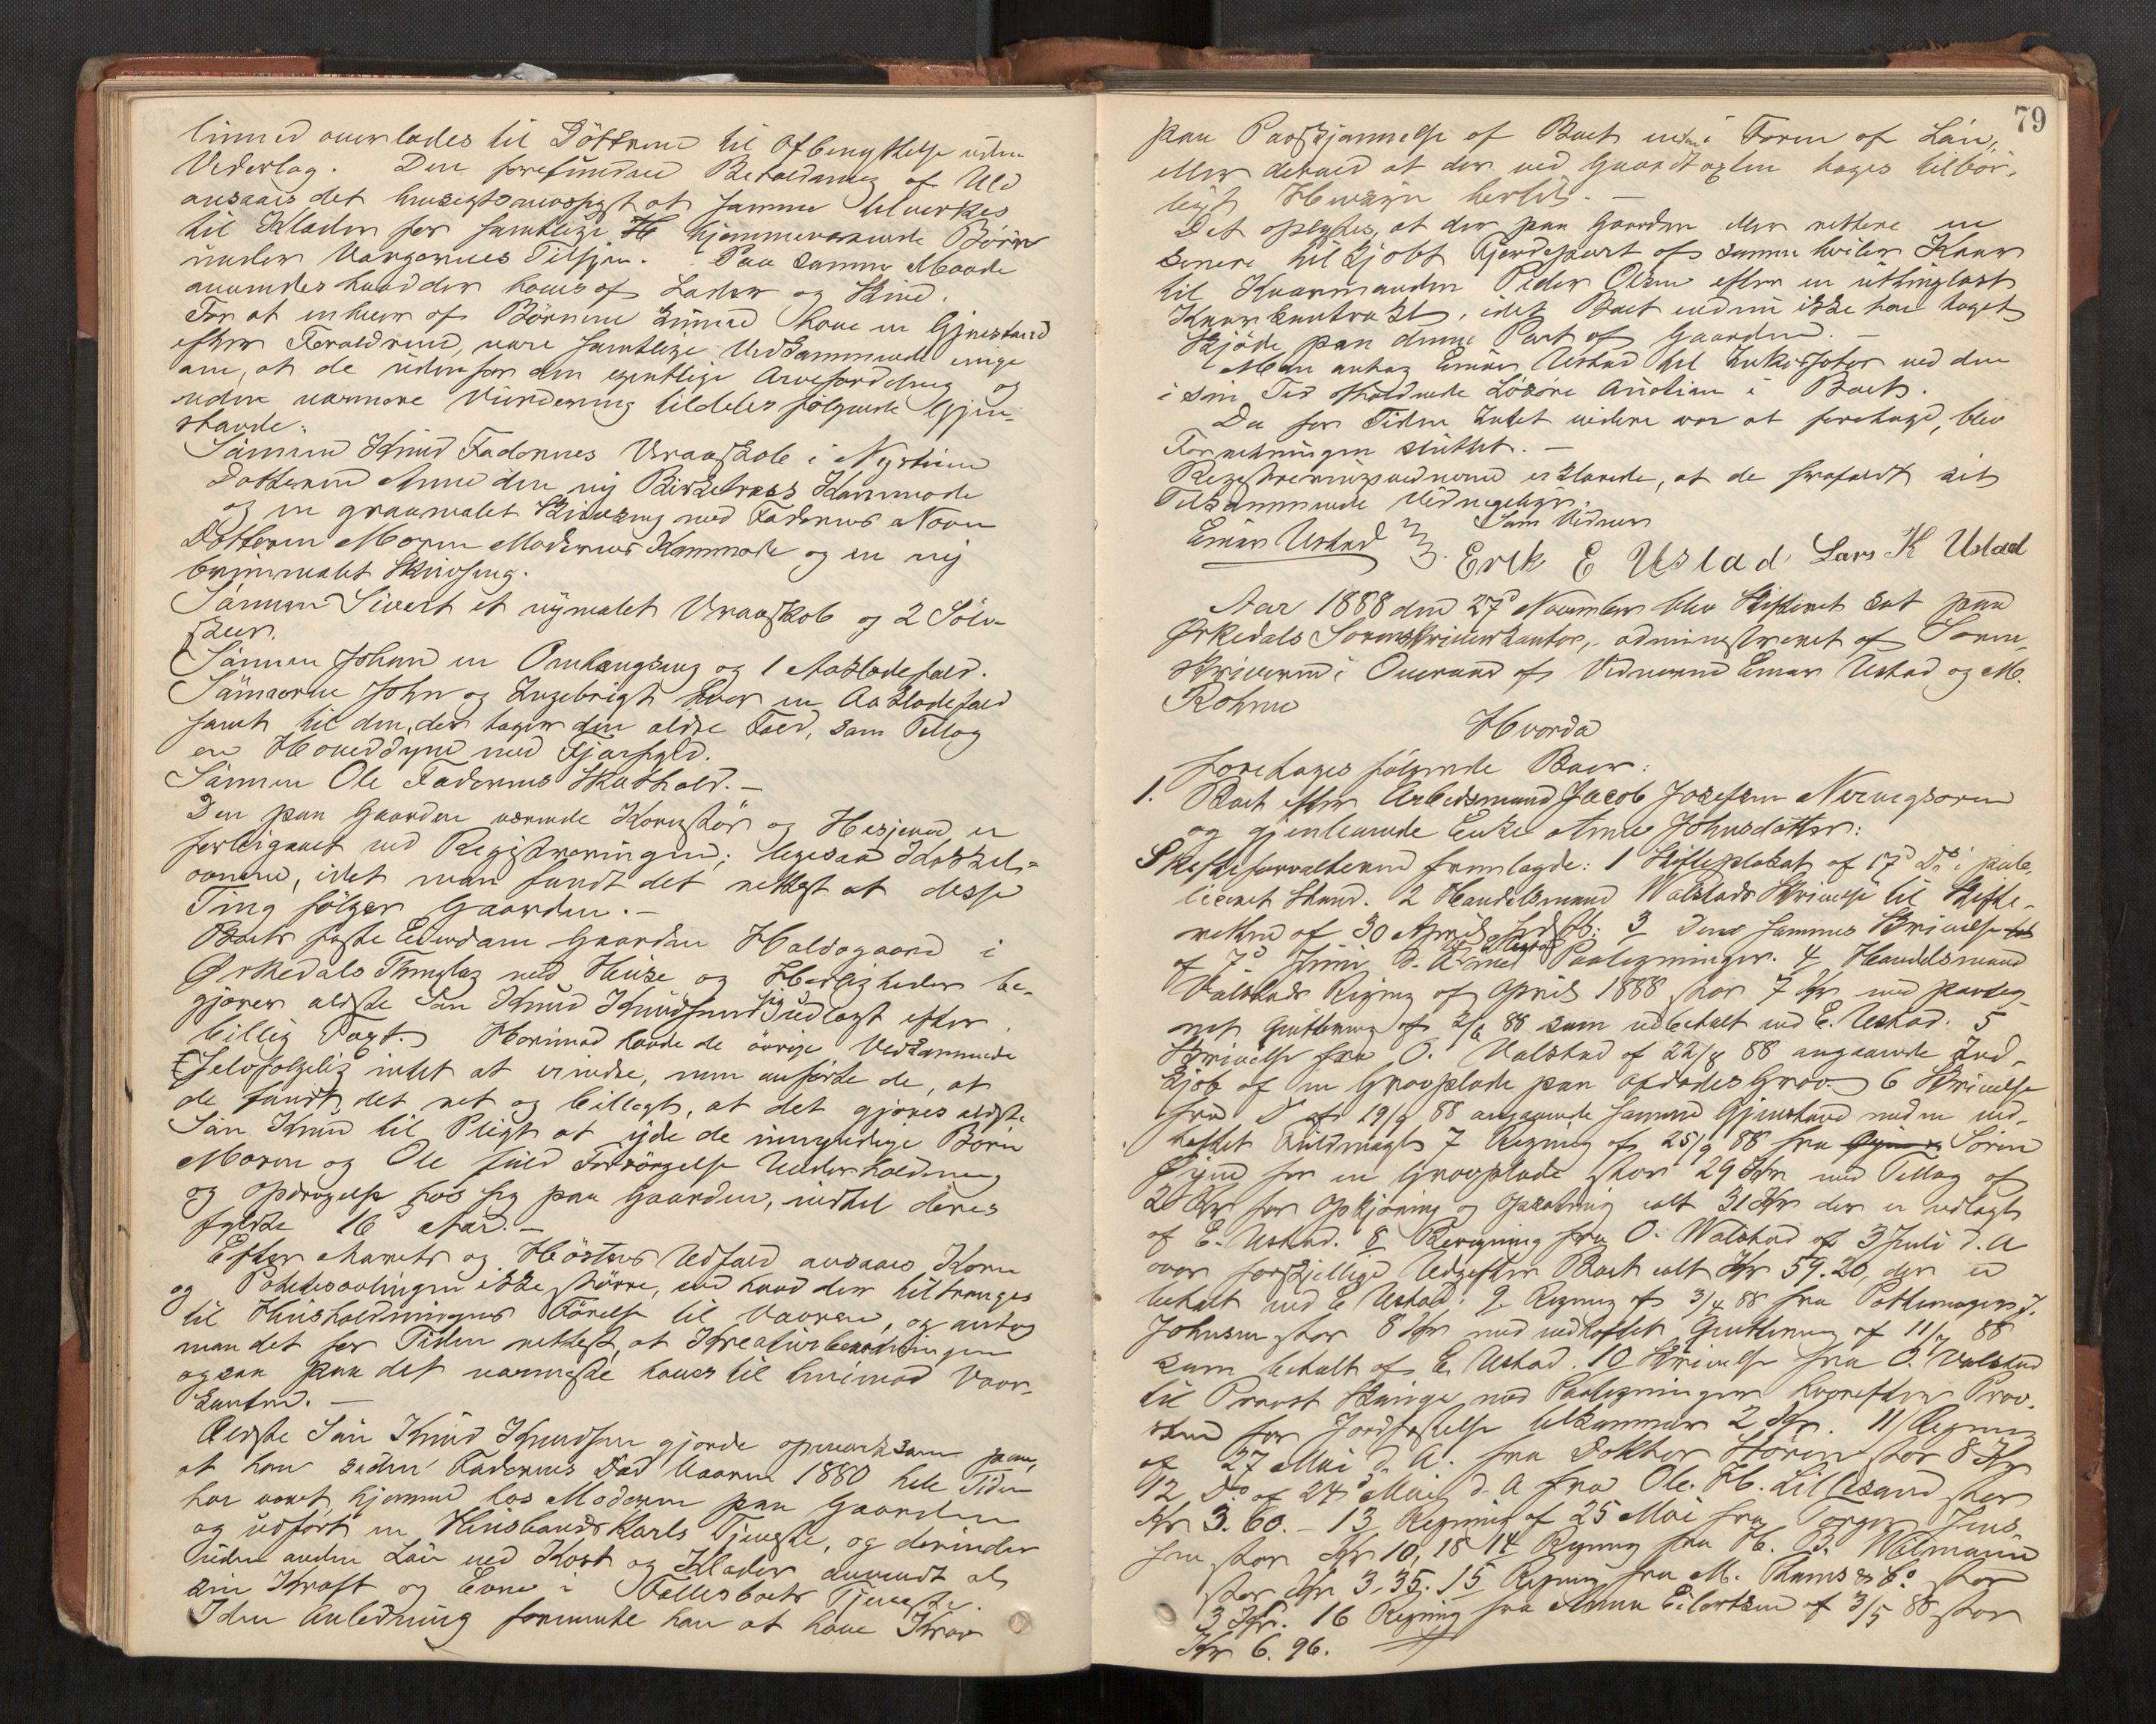 linned overlades til Döttrene til Afbenyttelse uden
Vederlag. Den forefundne Beholdning af Uld
ansaaes det hensigtsmessigst at samme tilverkes
til Klæder for samtlige hjemmeværende Börn
under Værgernes Tilsyn. Paa samme Maade
anvendes hvad der haves af Læder og Skind.
For at enhver af Börnene kunde have en Gjenstand
efter Forældrene, vare samtlige Vedkommende enige
om, at de udenfor den egentlige Arvefordeling og
uden nærmere Vurdering tildeles fölgende Gjen-
stande:
Sönnen Knud Faderens Vraaskab i Nystuen
Datteren Anne den ny Birketræes Kommode
og en graamalet Skivseng med Faderens Navn
Datteren Maren Moderens Kommode og en ny
brunmalet Skivseng.
Sönnen Sivert et nymalet Vraaskab og 2 Sölv-
skeer.
Sönnen Johan en Omhængseng og 1 Aaklædefæld.
Sönnerne John og Ingebrigt hver en Aaklædefæld
samt til den, der tager den ældre Fæld, som Tillæg
en Hoveddyne med Fjærfyld.
Sönnen Ole Faderens Skathold.
Den paa Gaarden værende Kornstör og Hesjeved er
forbigaaet ved Registreringen; ligesaa Kakkel-
ovnene, idet man fandt det rettest at disse
Ting fölger Gaarden.
Boets faste Eiendom Gaarden Haldogaard i
Ørkedals Thinglag med Huse og Herligheder be-
gjærer ældste Sön Knud Knudsen sig udlagt efter
billig Taxt. Herimod havde de övrige Vedkommende
selvfölgelig intet at erindre, men anförte de, at
de fandt det ret og billigt, at det gjöres ældste
Sön Knud til Pligt at yde de umyndige Börn
Maren og Ole fuld Forsörgelse Underholdning
og Opdragelse hos sig paa Gaarden, indtil deres
fyldte 16 Aar.
Efter Aarets og Höstens Udfald ansaaes Korn
og Potetesavlingen ikke större, end hvad der tiltrænges
til Husholdningens Förelse til Vaaren, og antog
man det for Tiden rettest, at Kreaturbesætningen
ogsaa paa det nærmeste haves til henimod Vaar-
kanten.
Ældste Sön Knud Knudsen gjorde opmærksom paa,
at han siden Faderens Död Vaaren 1880 hele Tiden
har været hjemme hos Moderen paa Gaarden
og udfört en Husbondskarls Tjeneste, og derunder
uden anden Lön end Kost og Klæder anvendt al
sin Kraft og Evne i Fællesboets Tjeneste.
I den Anledning formente han at have Krav
79
paa Paaskjönnelse af Boet enten i Form af Lön,
eller derved at der ved Gaardtaxten tages tilbör-
ligt Hensyn hertil.
Det oplystes, at der paa Gaarden eller rettere en
senere tilkjöbt Gjerdepart af samme hviler Kaar
til Kaarmanden Peder Olsen efter en uthinglæst
Kaarkontrakt, idet Boet endnu ikke har taget
Skjöde paa denne Part af Gaarden.
Man antog Einar Ustad til Inkassator ved den
i sin Tid afholdende Lösöre Auction i Boet.
Da for Tiden Intet videre var at foretage, blev
Forretningen sluttet.
Registreringsvidnerne erklærede, at de frafaldt sit
Tilkommende Vidnegebyr.
Som Vidner
Einar Ustad Erik E Ustad Lars K Ustad
Aar 1888 den 27de November blev Skifteret sat paa
Ørkedals Sorenskriverkontor, administreret af Soren-
skriveren i Overvær af Vidnerne Einar Ustad og M.
Rohme
Hvorda
foretages fölgende Boer:
1. Boet efter Arbeidsmand Jacob Josefsen Nervigsøren
og gjenlevende Enke Anne Johnsdatter:
Skifteforvalteren fremlagde: 1 Skifteplakat af 17de Ds. i pub-
liceret Stand. 2 Handelsmand Walstads Skrivelse til Skifte-
retten af 30 April 3 Den sammes Skrivelse
af 7de Juni d. A. med Paategninger. 4 Handelsmand
Valstads Regning af April 1888 stor 7 Kr med paateg-
net Quittering af 2/6 88 som udbetalt ved E. Ustad. 5
Skrivelse fra O. Valstad af 22/8 88 angaaende Ind-
kjöb af en Gravplade paa Afdödes Grav 6 Skrivelse
fra Ds af 19/9 88 angaaende samme Gjenstand med en ved-
heftet Fuldmagt 7 Regning af 25/9 88 fra Sören
for en Gravplade stor 29 Kr med Tillæg af
2 Kr for Opkjöring og Opsætning ialt 31 Kr der er udlagt
af E. Ustad. 8 Beregning fra O. Walstad af 3 Juli d. A
over forskjellige Udgifter Boet ialt Kr 59.20, der er
betalt ved E Ustad. 9. Regning af 3/4 88 fra Pottemager J.
Johnsen stor 8 Kr med vedheftet Quittering af 11/7 88
som betalt af E. Ustad. 10 Skrivelse fra O. Valstad
til Provst Skinge med Paategninger hvorefter Prov-
sten for Jordfæstelse tilkommer 2 Kr. 11 Regning
af 27 Mai d. A. fra Doktor Hören stor 8 Kr
12 Do af 24de Mai d. A fra Ole H. Lillesand stor
Kr 3.60. – 13 Regning af 25 Mai fra Torger Jens-
sen stor Kr 10,18 14 Regning fra H. B. Wilmann
stor Kr 3,35. 15 Regning fra M. Rams & Co stor
3 Kr. 16 Regning fra Anna Eilertsen af 3/5 88 stor
Kr 6.96.